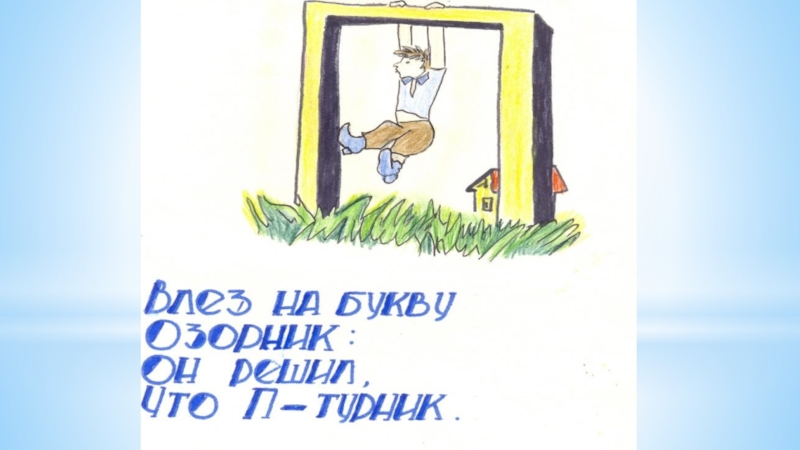 Влез на букву
Озорник:
Он решил,
Что П-турник.